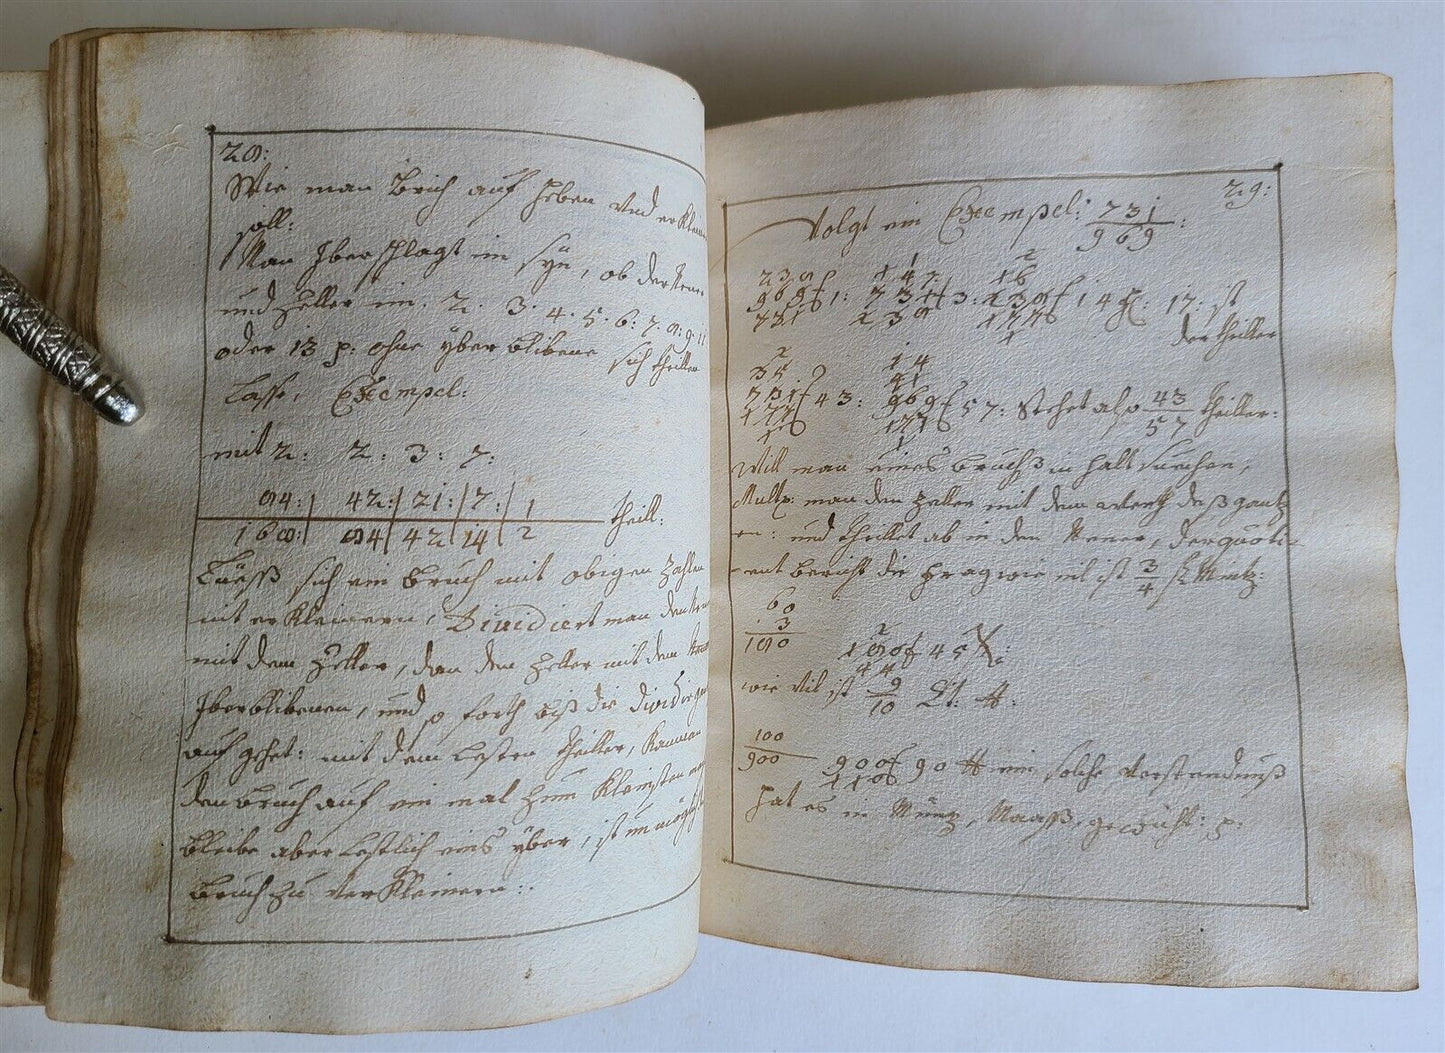 28:
Wie man Brich auf heben und erKlein
soll:
Man Iberschlagt im Syn, ob der Nener
und Zeller in. 2. 3. 4. 5. 6: 7. 8: 9. 11
oder 13 p: ohne yberblibens sich theillen
Lasse, Exempel:
mit 2: 2: 3: 7:
84: 42: 21: 7: 1 theill:
168: 84 42 14 2
Läßt sich ein Bruch mit obigen Zahlen
nit erKleinern, Diuidiert man den Nener
mit dem Zeller, dan den Zeller mit dem
Iberblibenen, und so forth biß die diuidirg
auf gehet: mit dem Lesten theiller, Kan man
den Bruch auf ein mal zum Kleinsten
bleibt aber Lestlich eins yber, ist unmögl
Bruch zu verKleinern:.
29:
Volgt ein Exempel: 731
969
1 2
238 147 16
969 f 1: 731 f 3: 238 f 14 17: ist
731 238 der theiller
2 14
35
731 f 43: 969 f 57: Stehet also 43 theiller:
57
Will man eines Bruchß in halt suechen,
Multp: man den Zeller mit dem werth deß gantz
en: und theillet ab in den Nener, der quoti=
ent bericht die frag wie vil ist 3/4 fl Mintz:
60
3
180
2
180 f 45 X:
44
wie vil ist 9
10
100
900 900 f 90 ein solche Verstendnuß
110
hat es in Müntz, Maaß, gewicht: p: